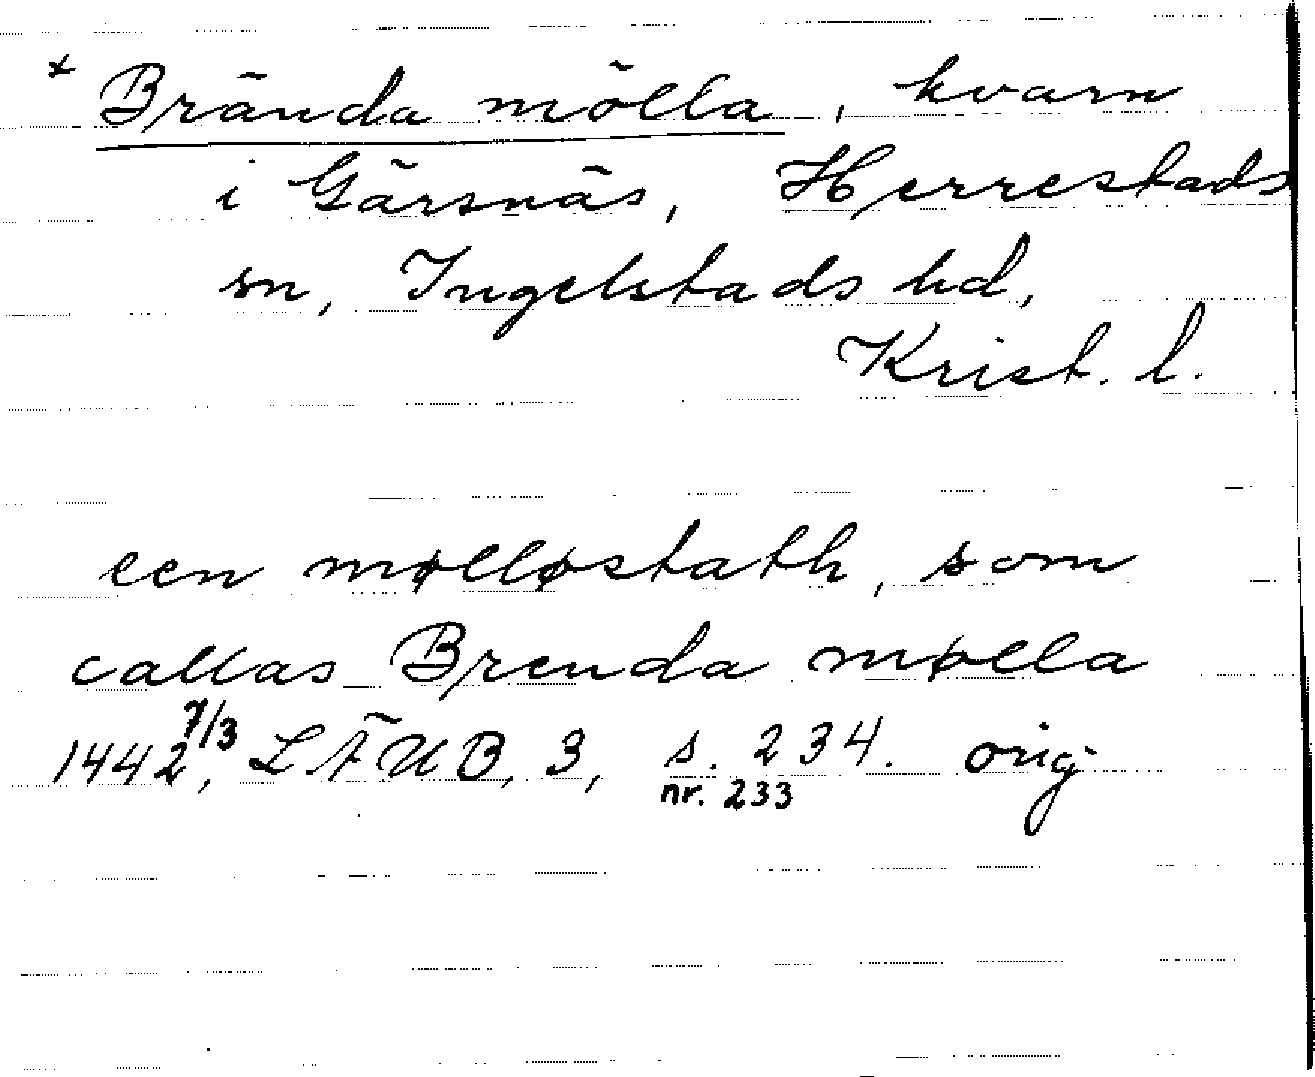 * Brända mölla, kvarn
i Gärsnäs, Herrestads
sn, Ingelstads hd,
Krist. l.
een mølløstath, som
callas Brenda mølla
1442 7/3, LÄUB, 3, s. 234. orig
nr. 233